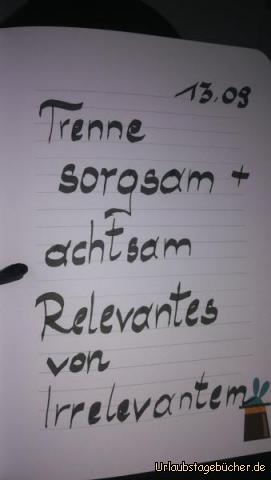 13.09
Trenne
sorgsam +
achtsam
Relevantes
von
Irrelevantem
Urlaubstagebücher.de